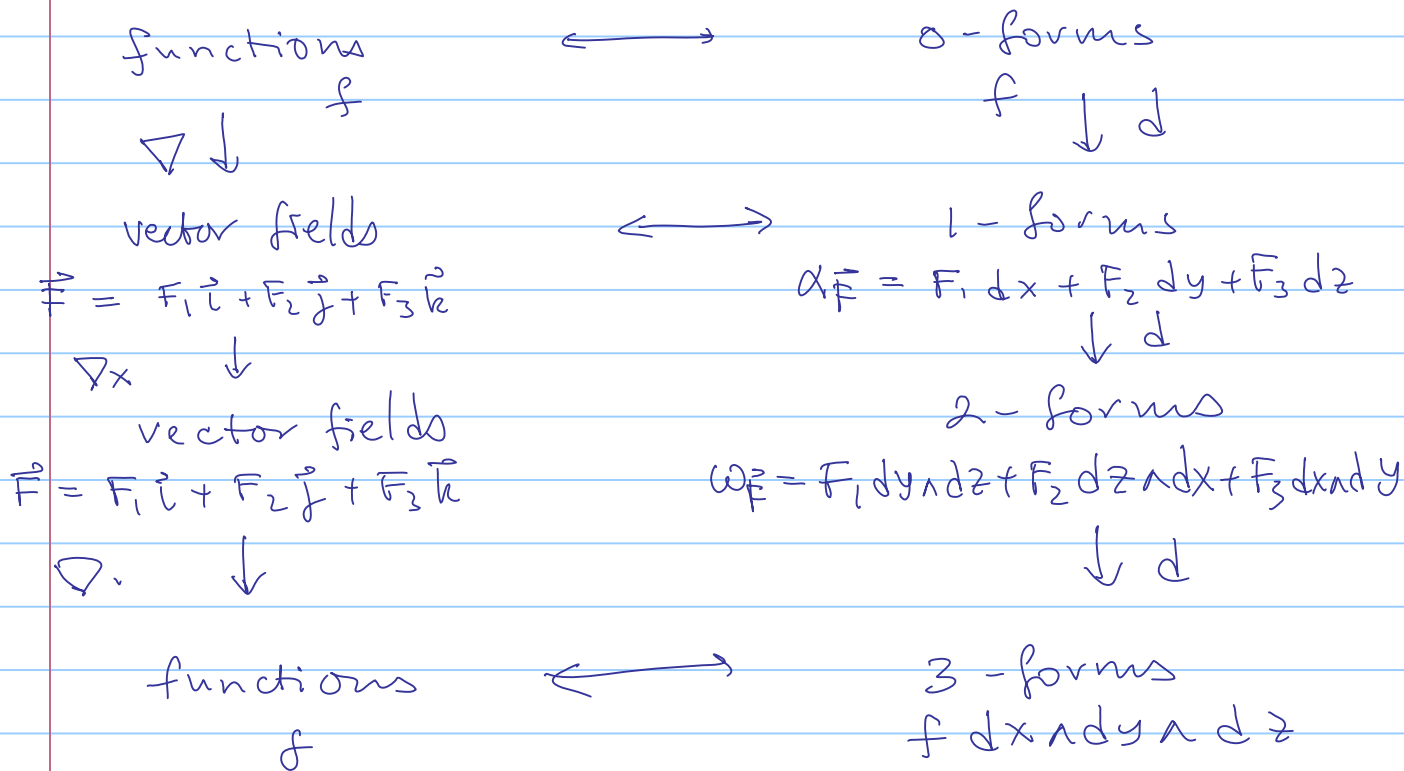 functions ⟷ 0-forms
f f ↓ d
∇ ↓
vector fields ⟷ 1-forms
F⃗ = F₁ i⃗ + F₂ j⃗ + F₃ k⃗ α_F⃗ = F₁ dx + F₂ dy + F₃ dz
∇× ↓ ↓ d
vector fields 2-forms
F⃗ = F₁ i⃗ + F₂ j⃗ + F₃ k⃗ ω_F⃗ = F₁ dy∧dz + F₂ dz∧dx + F₃ dx∧dy
∇· ↓ ↓ d
functions ⟷ 3-forms
f f dx∧dy∧dz